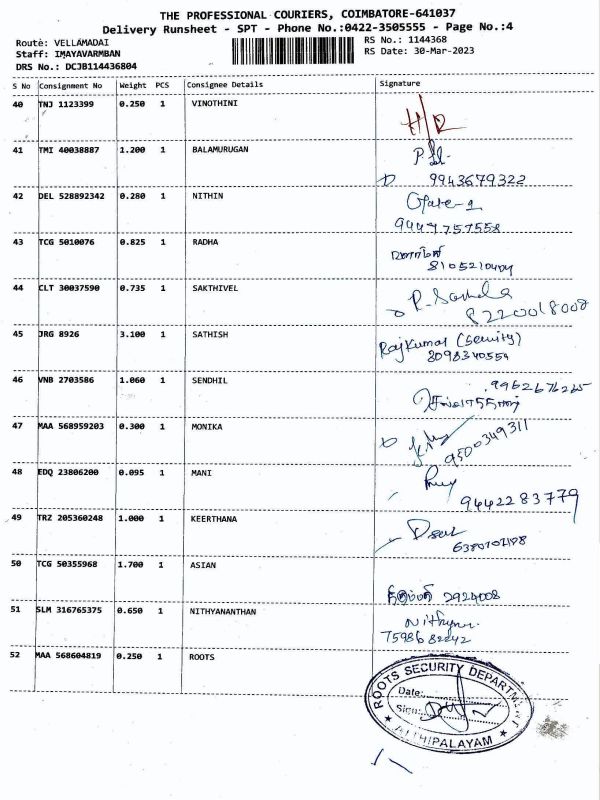 THE PROFESSIONAL COURIERS, COIMBATORE-641037
Delivery Runsheet - SPT - Phone No.:0422-3505555 - Page No.:4
Route: VELLAMADAI
RS No.: 1144368
Staff: IMAYAVARMBAN
RS Date: 30-Mar-2023
DRS No.: DCJB114436804
S No Consignment No Weight PCS Consignee Details Signature
40 TNJ 1123399 0.250 1 VINOTHINI
41 TMI 40038887 1.200 1 BALAMURUGAN
9943679322
42 DEL 528892342 0.280 1 NITHIN
9447757558
43 TCG 5010076 0.825 1 RADHA
8105210404
44 CLT 30037590 0.735 1 SAKTHIVEL
8220018008
45 JRG 8926 3.100 1 SATHISH
Rajkumar (Security)
8098340554
46 VNB 2703586 1.060 1 SENDHIL
9962676265
47 MAA 568959203 0.300 1 MONIKA
9500349311
48 EDQ 23806200 0.095 1 MANI
9442283779
49 TRZ 205360248 1.000 1 KEERTHANA
50 TCG 50355968 1.700 1 ASIAN
2924008
51 SLM 316765375 0.650 1 NITHYANANTHAN
52 MAA 568604819 0.250 1 ROOTS
ROOTS SECURITY DEPARTMENT
Date:
Sign:
ATHIPALAYAM